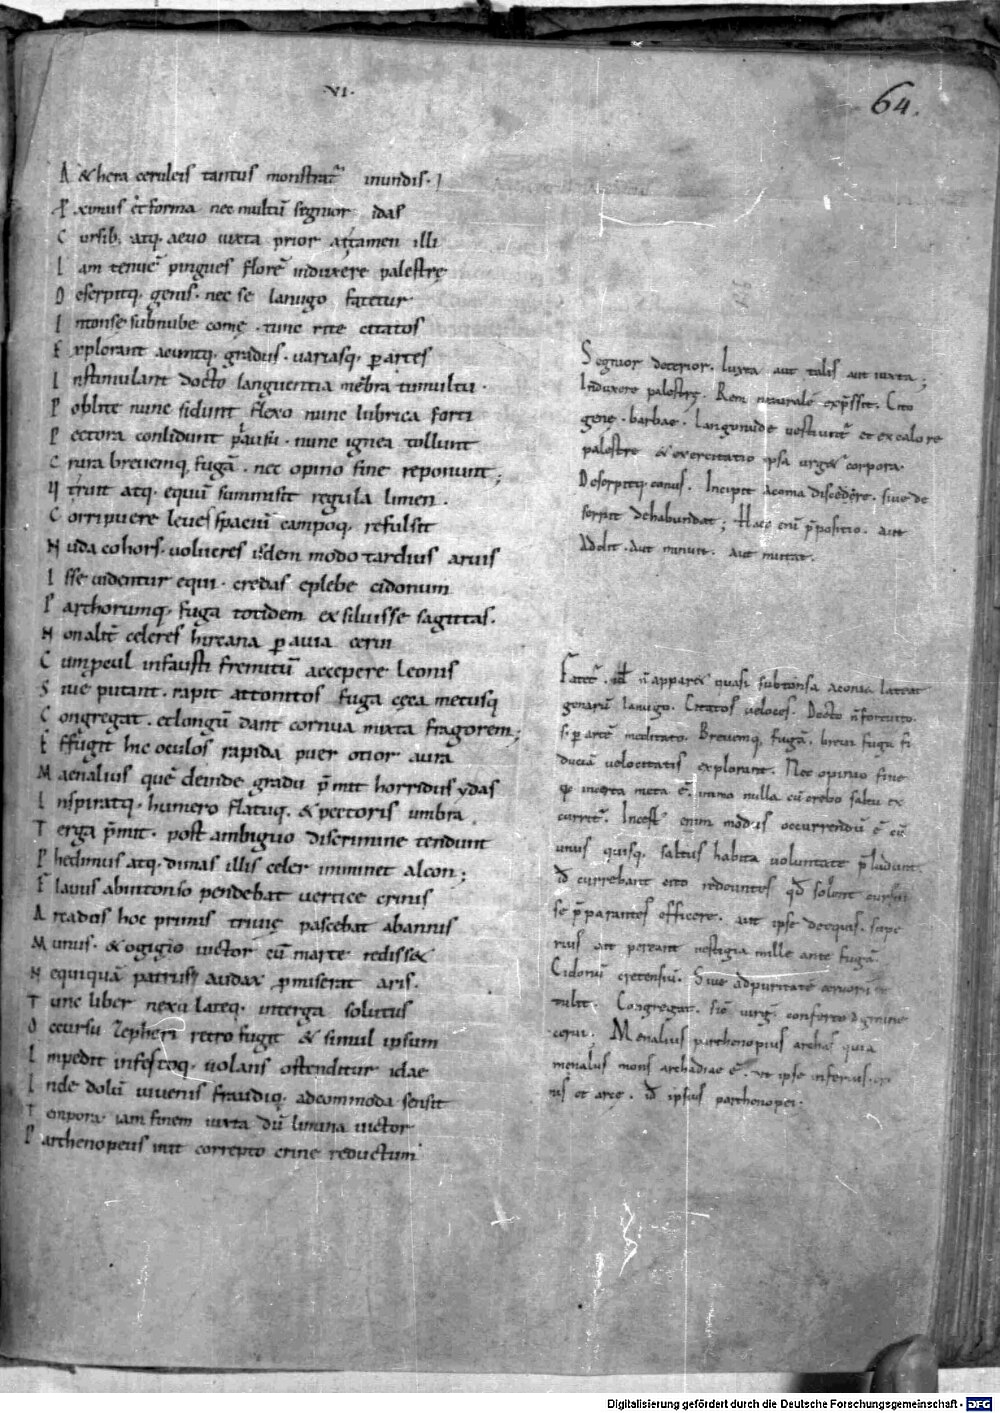 VI.
64.
A & hera ceruleis tantus monstrat᷑ inundis.
P̱ ximus & forma nec multũ segnior idas
C ursib; atq; aeuo iuxta prior attamen illi
I am tenuẽ pingues florẽ induxere palestrę
D eserpitq; genis. nec se lanugo fatetur
I ntonse subnube comę. tunc rite citatos
E xplorant acuuntq; gradus. uariasq; ꝑ artes
I nstimulant docto languentia mẽbra tumultu.
P oblite nunc sidunt flexo nunc lubrica forti
P ectora conlidunt plausu. nunc ignea tollunt
C rura breuemq; fugã. nec opino fine reponunt;
U t ruit atq; equũ summisit regula limen.
C orripuere leues spaciũ campoq; refulsit
N uda cohors. uolucres isdem modo tardius aruis
I sse uidentur equi. credas eplebe cidonum
P arthorumq; fuga totidem exsiluisse sagittas.
N on alit᷑ celeres hircana ꝑ auia cerui
C um procul infausti fremitũ accepere leonis
S iue putant. rapit attonitos fuga cęca metusq;
C ongregat. et longũ dant cornua mixta fragorem;
E ffugit hic oculos rapida puer otior aura
M aenalius quẽ deinde gradu p̃mit horridus ydas
I nspiratq; humero flatuq; & pectoris umbra
T erga p̃mit. post ambiguo discrimine tendunt
P hedimus atq; dimas illis celer imminet alcon;
F lauus abintonso pendebat uertice crinis
A rcadis hoc primis triuię pascebat abannis
M unus. & ogigio uictor cũ marte redisset
N equiquã patriis audax ꝓmiserat aris.
T unc liber nexu lateq; interga solutus
O ccursu Zepheri retro fugit & simul ipsum
I mpedit infestoq; uolans ostenditur idae
I nde dolũ iuuenis fraudiq; adcommoda sensit
T empora. iam finem iuxta dũ limina uictor
P arthenopeus init correpto crine reductum
Segnior deterior. Iuxta aut talis aut iuxta;
Induxere palestrę. Rem naturalẽ exp̃ssit. Cito
genę. barbae. languide uestiunt᷑ et ex calore
palestre & exercitatio ipsa urget corpora.
Deserpitq; conus. Incipit acoma discedere. siue de
serpit dehabundat; Haec eni p̃positio. aut
Adolit. Aut minuit. aut mutat.
Fatet᷑. id ñ apparet quasi subtonsa acoma lateat
genarũ lanugo. Citatos ueloces. Docto ñ fortuito.
s; ꝑ artẽ meditato. Breuemq; fugã. breui fuga fi
duciã uelocitatis explorant. Nec opino fine
incerta meta ẽ. immo nulla cũ crebo saltu ex
curret᷑. Incest enim modis occurrendũ ẽ cũ
unus quisq; saltus habita uoluntate p̃ludunt.
id currebant cito redeuntes qd solent cursui
se p̃parantes efficere. aut ipse deequis. supe
rius ait pereunt uestigia mille ante fugã.
Cidonũ cretensiũ. Siue ad
tulit. Congregat. sic uirg. conferto agmine
cerui. Menalius parthenopius archas quia
menalus mons archadiae ẽ. ut ipse inferius
nis et arce. id ipsius parthenopei.
Digitalisierung gefördert durch die Deutsche Forschungsgemeinschaft - DFG